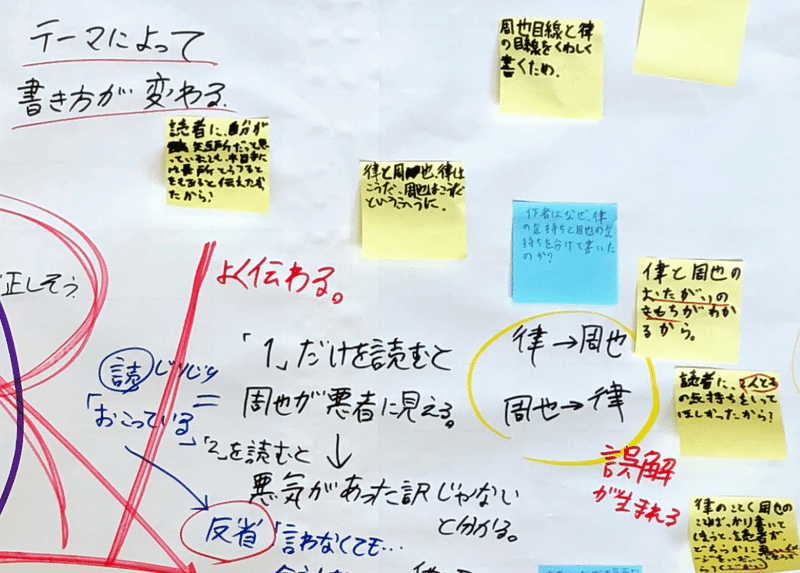 テーマによって
書き方が変わる。
周也目線と律
の目線をくわしく
書くため。
読者に、自分が
短所だって思
っていたとしても
長所
と伝えたか
ったから?
律と周也、律は
こうだ、周也はこうだ
というふうに。
作者はなぜ、律
の気持ちと周也の気
持ちを分けて書いた
のか?
律と周也の
おたがいの
きもちがわか
るから。
正しそう
よく伝わる。
読 じりじり
「おこっている」
=
「1」だけを読むと
周也が悪者に見える。
↓
「2」を読むと
悪気があった訳じゃない
と分かる。
反省
「言わなくても…
律→周也
周也→律
誤解
が生まれる
読者に、2人とも
の気持ちをしって
ほしかったから?
律のことく周也の
ことばっかり書いて
しまうと、読者が、
どちらかに